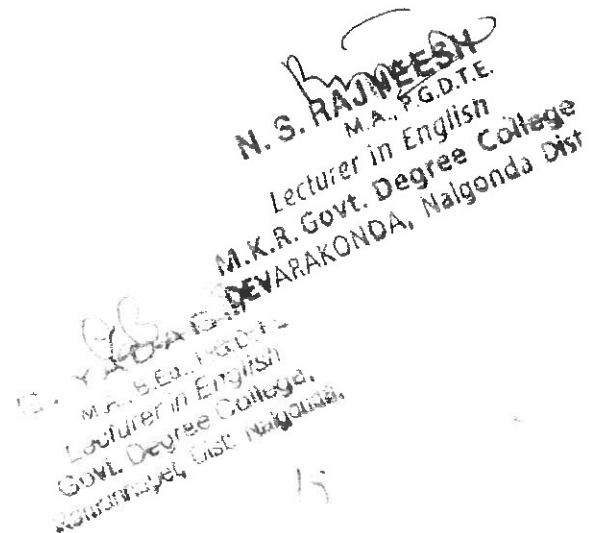 N. S. RAJNEESH
M.A., P.G.D.T.E.
Lecturer in English
M.K.R. Govt. Degree College
DEVARAKONDA, Nalgonda Dist
M.A., B.Ed., P.G.D.T.E.
Lecturer in English
Govt. Degree College,
Dist. Nalgonda.